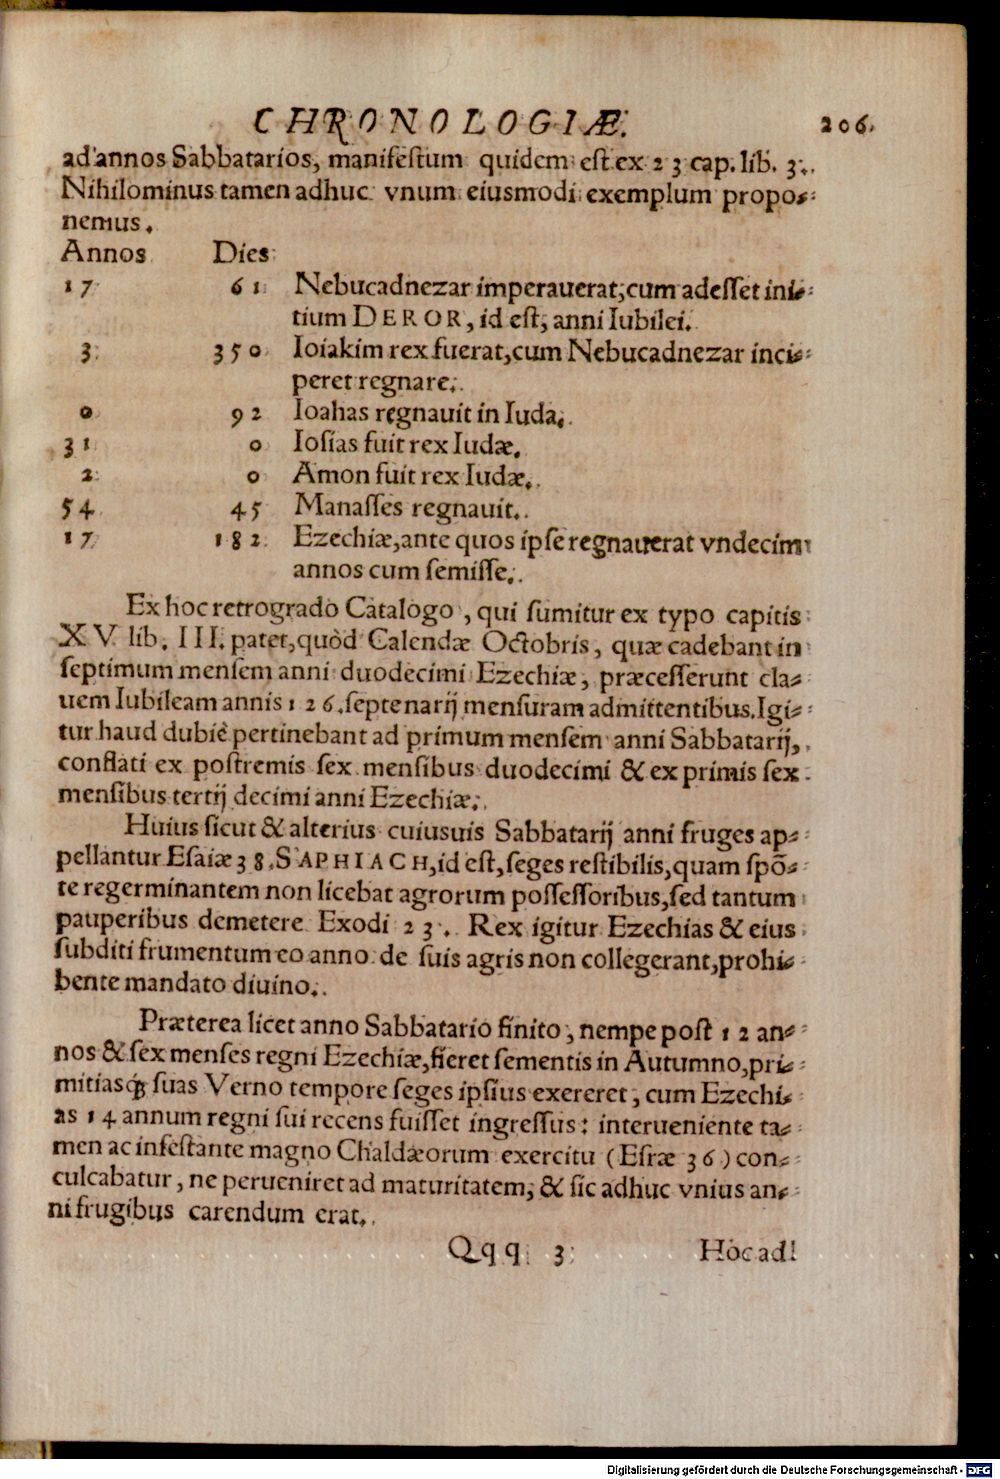 CHRONOLOGIÆ. 206.
ad annos Sabbatarios, manifestum quidem est ex 23 cap. lib. 3.
Nihilominus tamen adhuc vnum eiusmodi exemplum propo-
nemus.
Annos Dies
17 61 Nebucadnezar imperauerat, cum adesset ini-
tium DEROR, id est, anni Iubilei.
3 350 Ioiakim rex fuerat, cum Nebucadnezar inci-
peret regnare.
0 92 Ioahas regnauit in Iuda.
31 0 Iosias fuit rex Iudæ.
2 0 Amon fuit rex Iudæ.
54 45 Manasses regnauit.
17 182 Ezechiæ, ante quos ipse regnauerat vndecim
annos cum semisse.
Ex hoc retrogrado Catalogo, qui sumitur ex typo capitis
XV lib. III. patet, quòd Calendæ Octobris, quæ cadebant in
septimum mensem anni duodecimi Ezechiæ, præcesserunt cla-
uem Iubileam annis 126. septenarij mensuram admittentibus. Igi-
tur haud dubiè pertinebant ad primum mensem anni Sabbatarij,
conflati ex postremis sex mensibus duodecimi & ex primis sex
mensibus tertij decimi anni Ezechiæ.
Huius sicut & alterius cuiusuis Sabbatarij anni fruges ap-
pellantur Esaiæ 38. SAPHIACH, id est, seges restibilis, quam spõ-
te regerminantem non licebat agrorum possessoribus, sed tantum
pauperibus demetere Exodi 23. Rex igitur Ezechias & eius
subditi frumentum eo anno de suis agris non collegerant, prohi-
bente mandato diuino.
Præterea licet anno Sabbatario finito, nempe post 12 an-
nos & sex menses regni Ezechiæ, fieret sementis in Autumno, pri-
mitiasꝙ suas Verno tempore seges ipsius exereret, cum Ezechi-
as 14 annum regni sui recens fuisset ingressus: interueniente ta-
men ac infestante magno Chaldæorum exercitu (Esræ 36) con-
culcabatur, ne perueniret ad maturitatem, & sic adhuc vnius an-
ni frugibus carendum erat.
Qqq 3 Hoc ad
Digitalisierung gefördert durch die Deutsche Forschungsgemeinschaft - DFG